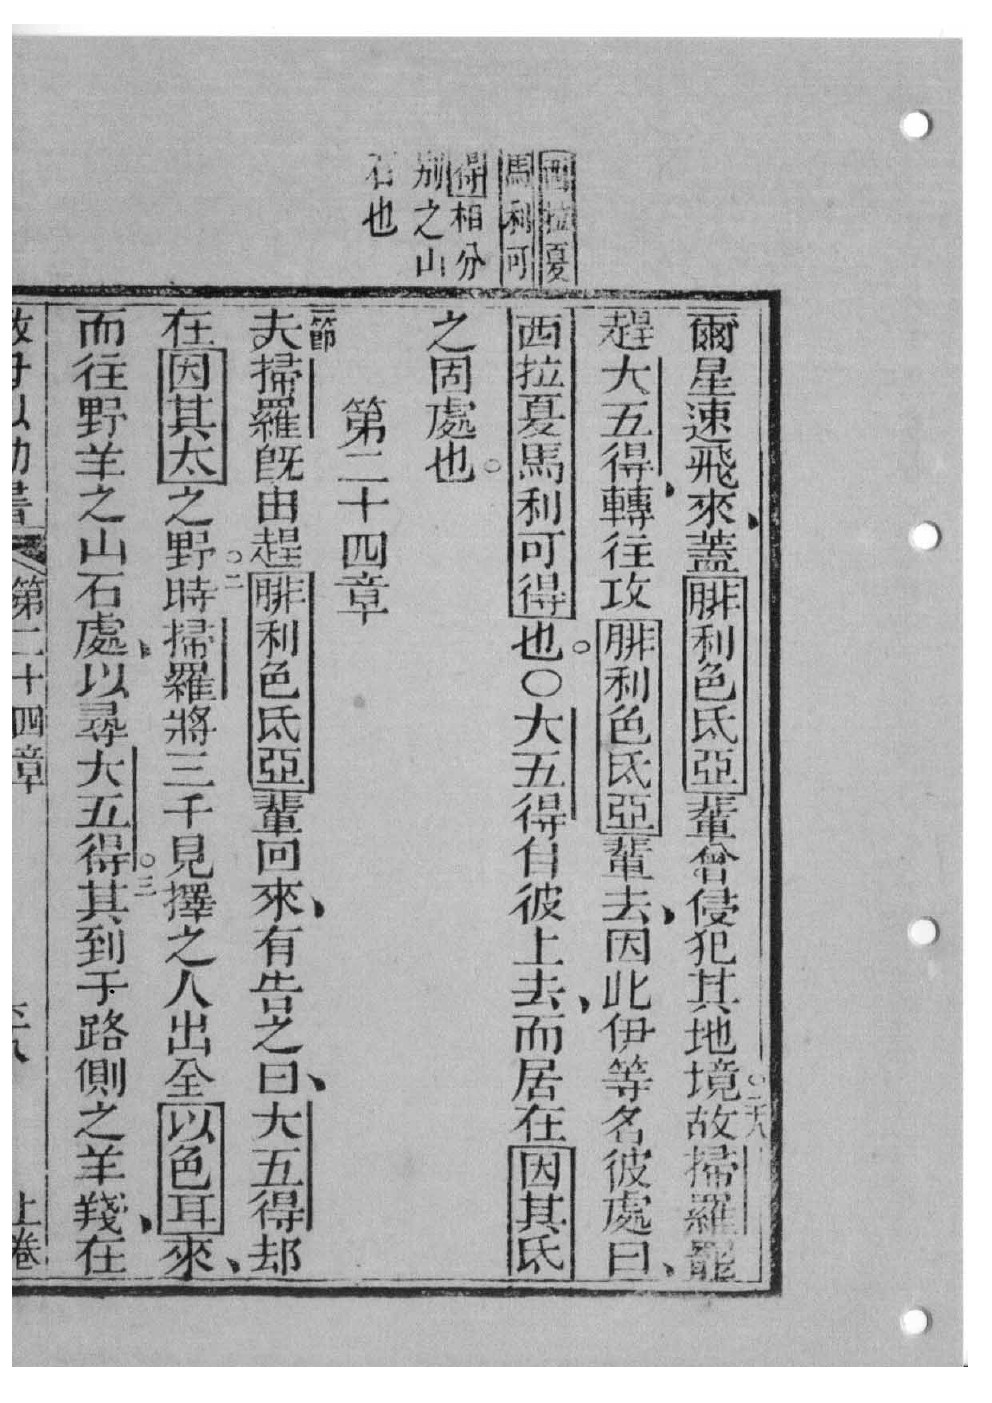 西拉夏
馬利可
得相分
别之山
石也
爾星速飛來蓋腓利色氐亞輩曾侵犯其地境故掃羅罷
○二八
趕大五得轉往攻腓利色氐亞輩去因此伊等名彼處曰
西拉夏馬利可得也。〇大五得自彼上去、而居在因其氐
之固處也。
第二十四章
一節
夫掃羅旣由趕腓利色氐亞輩回來、有告之曰、大五得却
在因其太之野。二時掃羅將三千見擇之人出全以色耳來、
而往野羊之山石處、以尋大五得。三其到于路側之羊羧、在
第二十四章
上卷